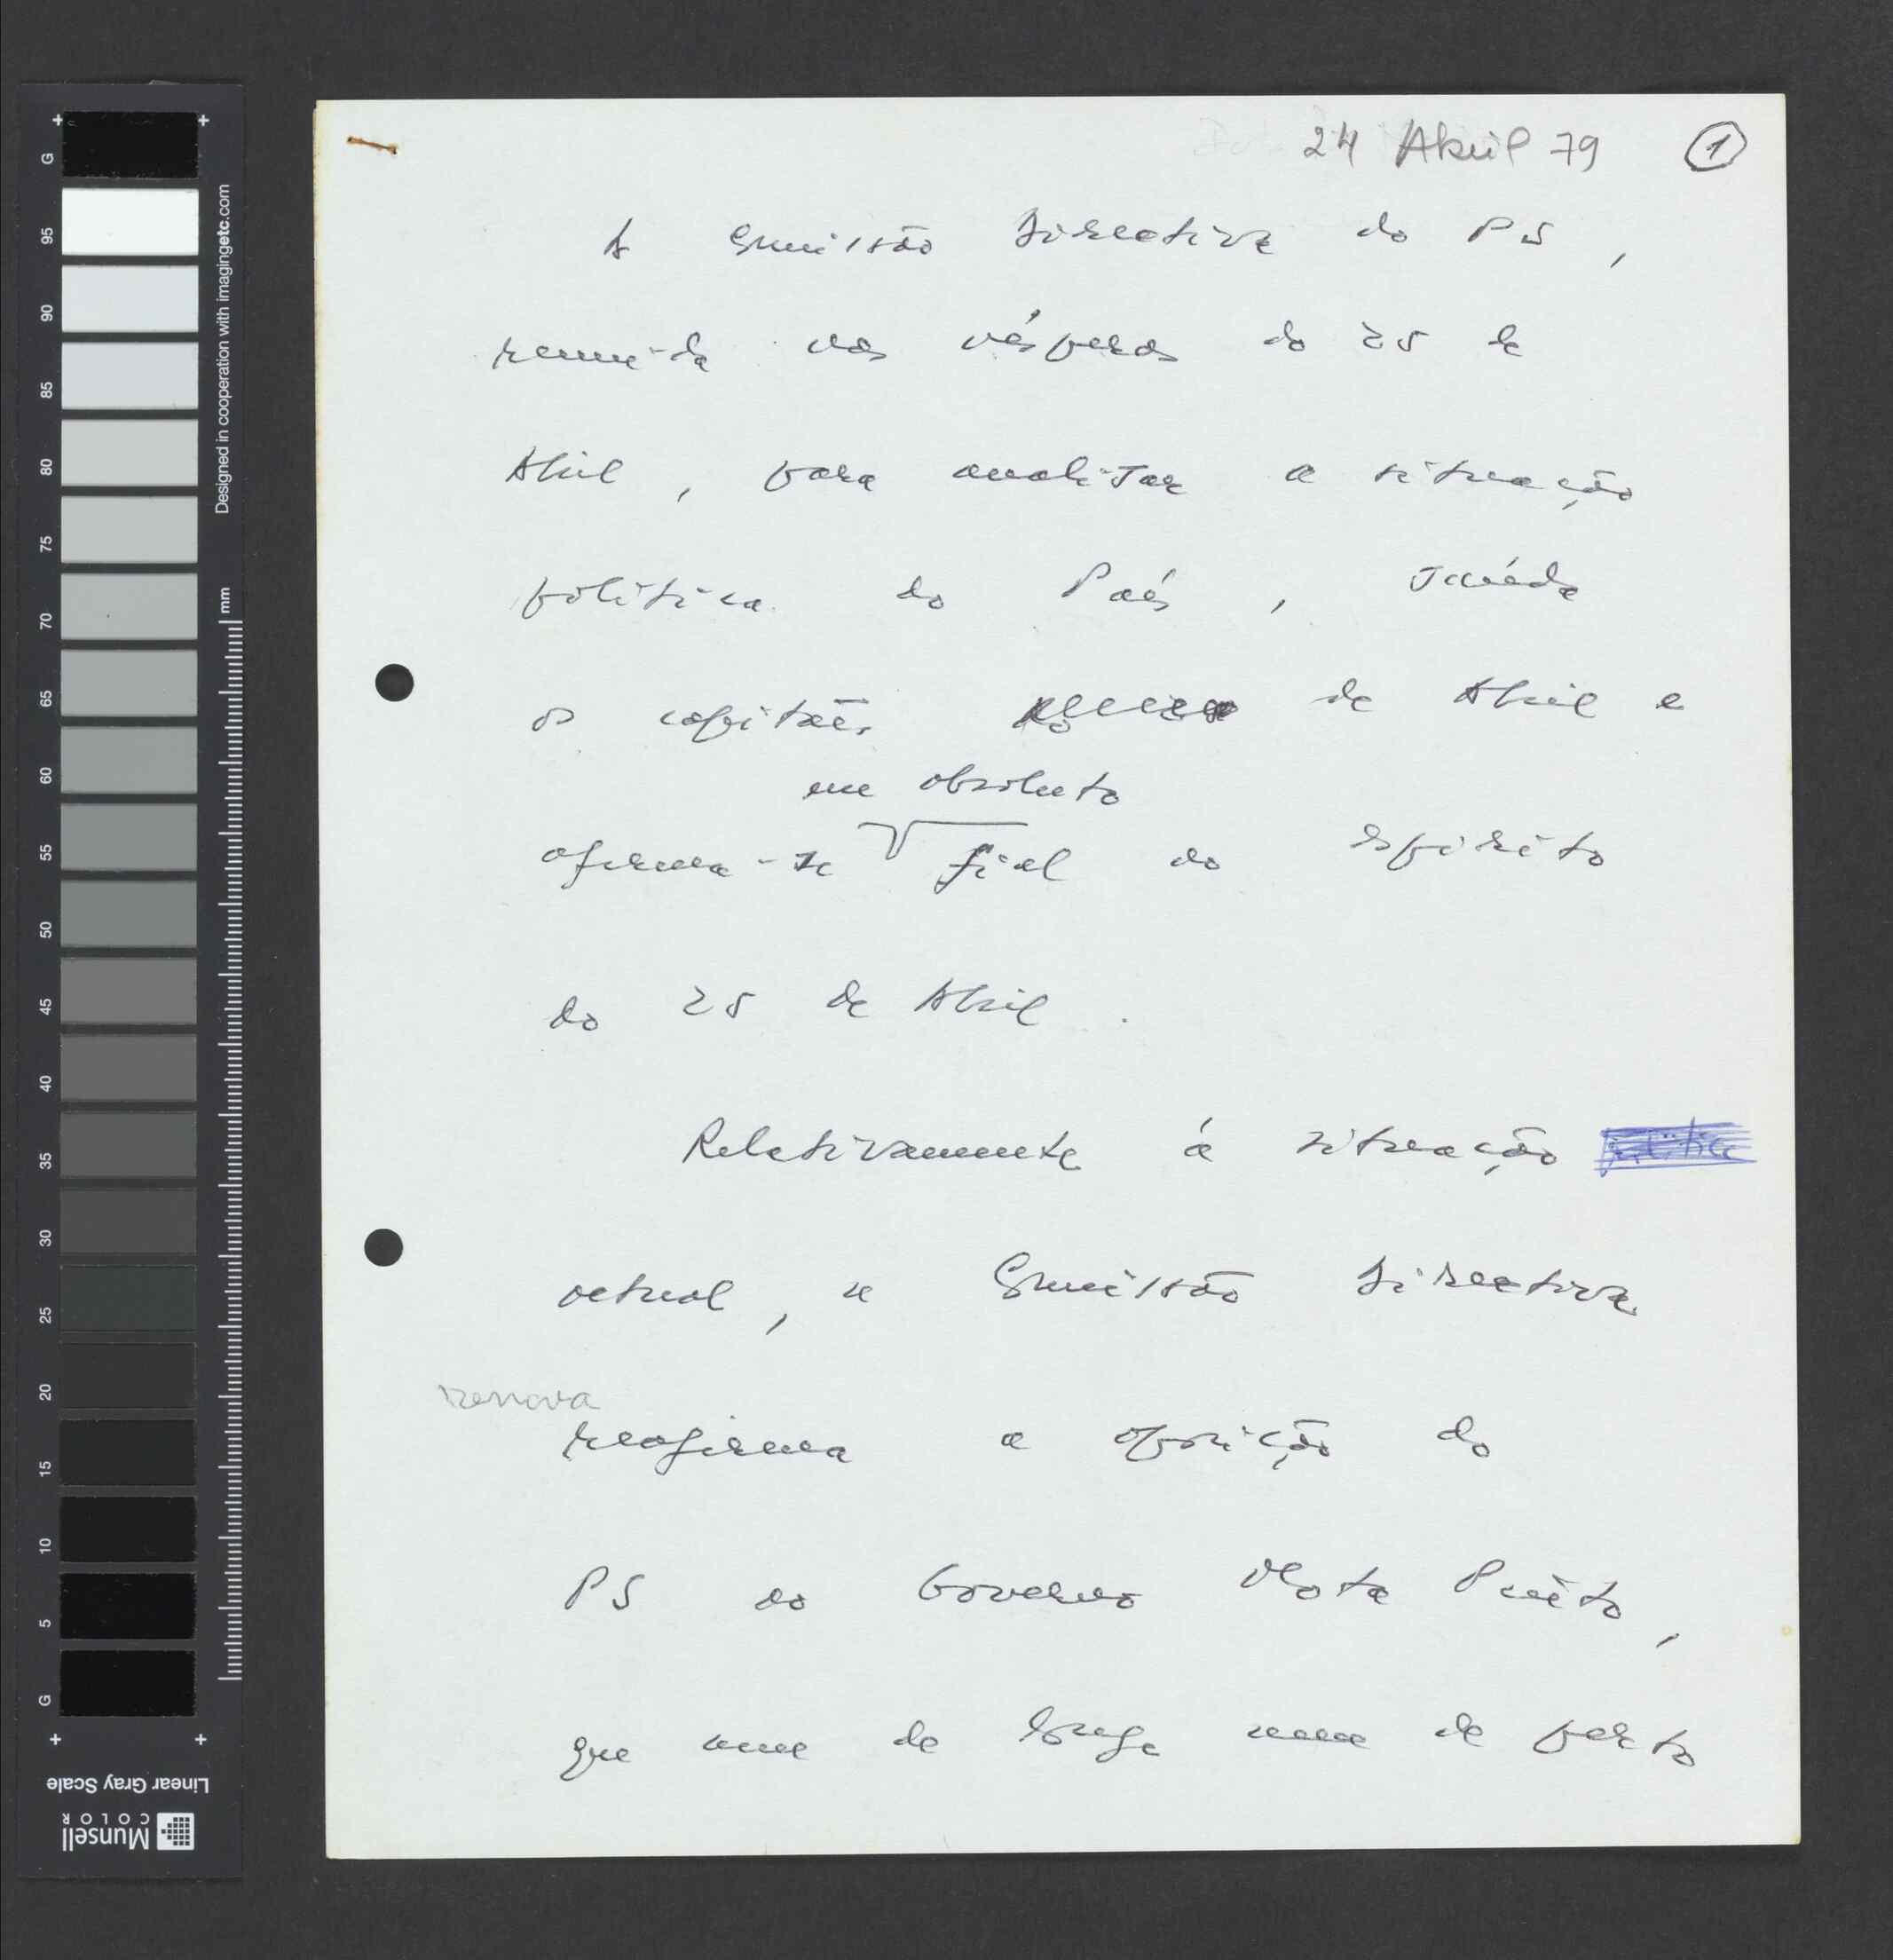 24 Abril 79 1
A Comissão Directiva do PS,
reunida nas vésperas do 25 de
Abril, para analisar a situação
política do País, saúda
os capitães de Abril e
em absoluto
afirma-se fiel ao espírito
do 25 de Abril.
Relativamente à situação política
actual, a Comissão Directiva
renova
reafirma a oposição do
PS ao Governo Mota Pinto,
que nem de longe nem de perto
G 95 90 85 80 75 70 65 60 55 50 45 40 35 30 25 20 15 10 5 G
Designed in cooperation with imagingetc.com
mm
Linear Gray Scale
Munsell
COLOR